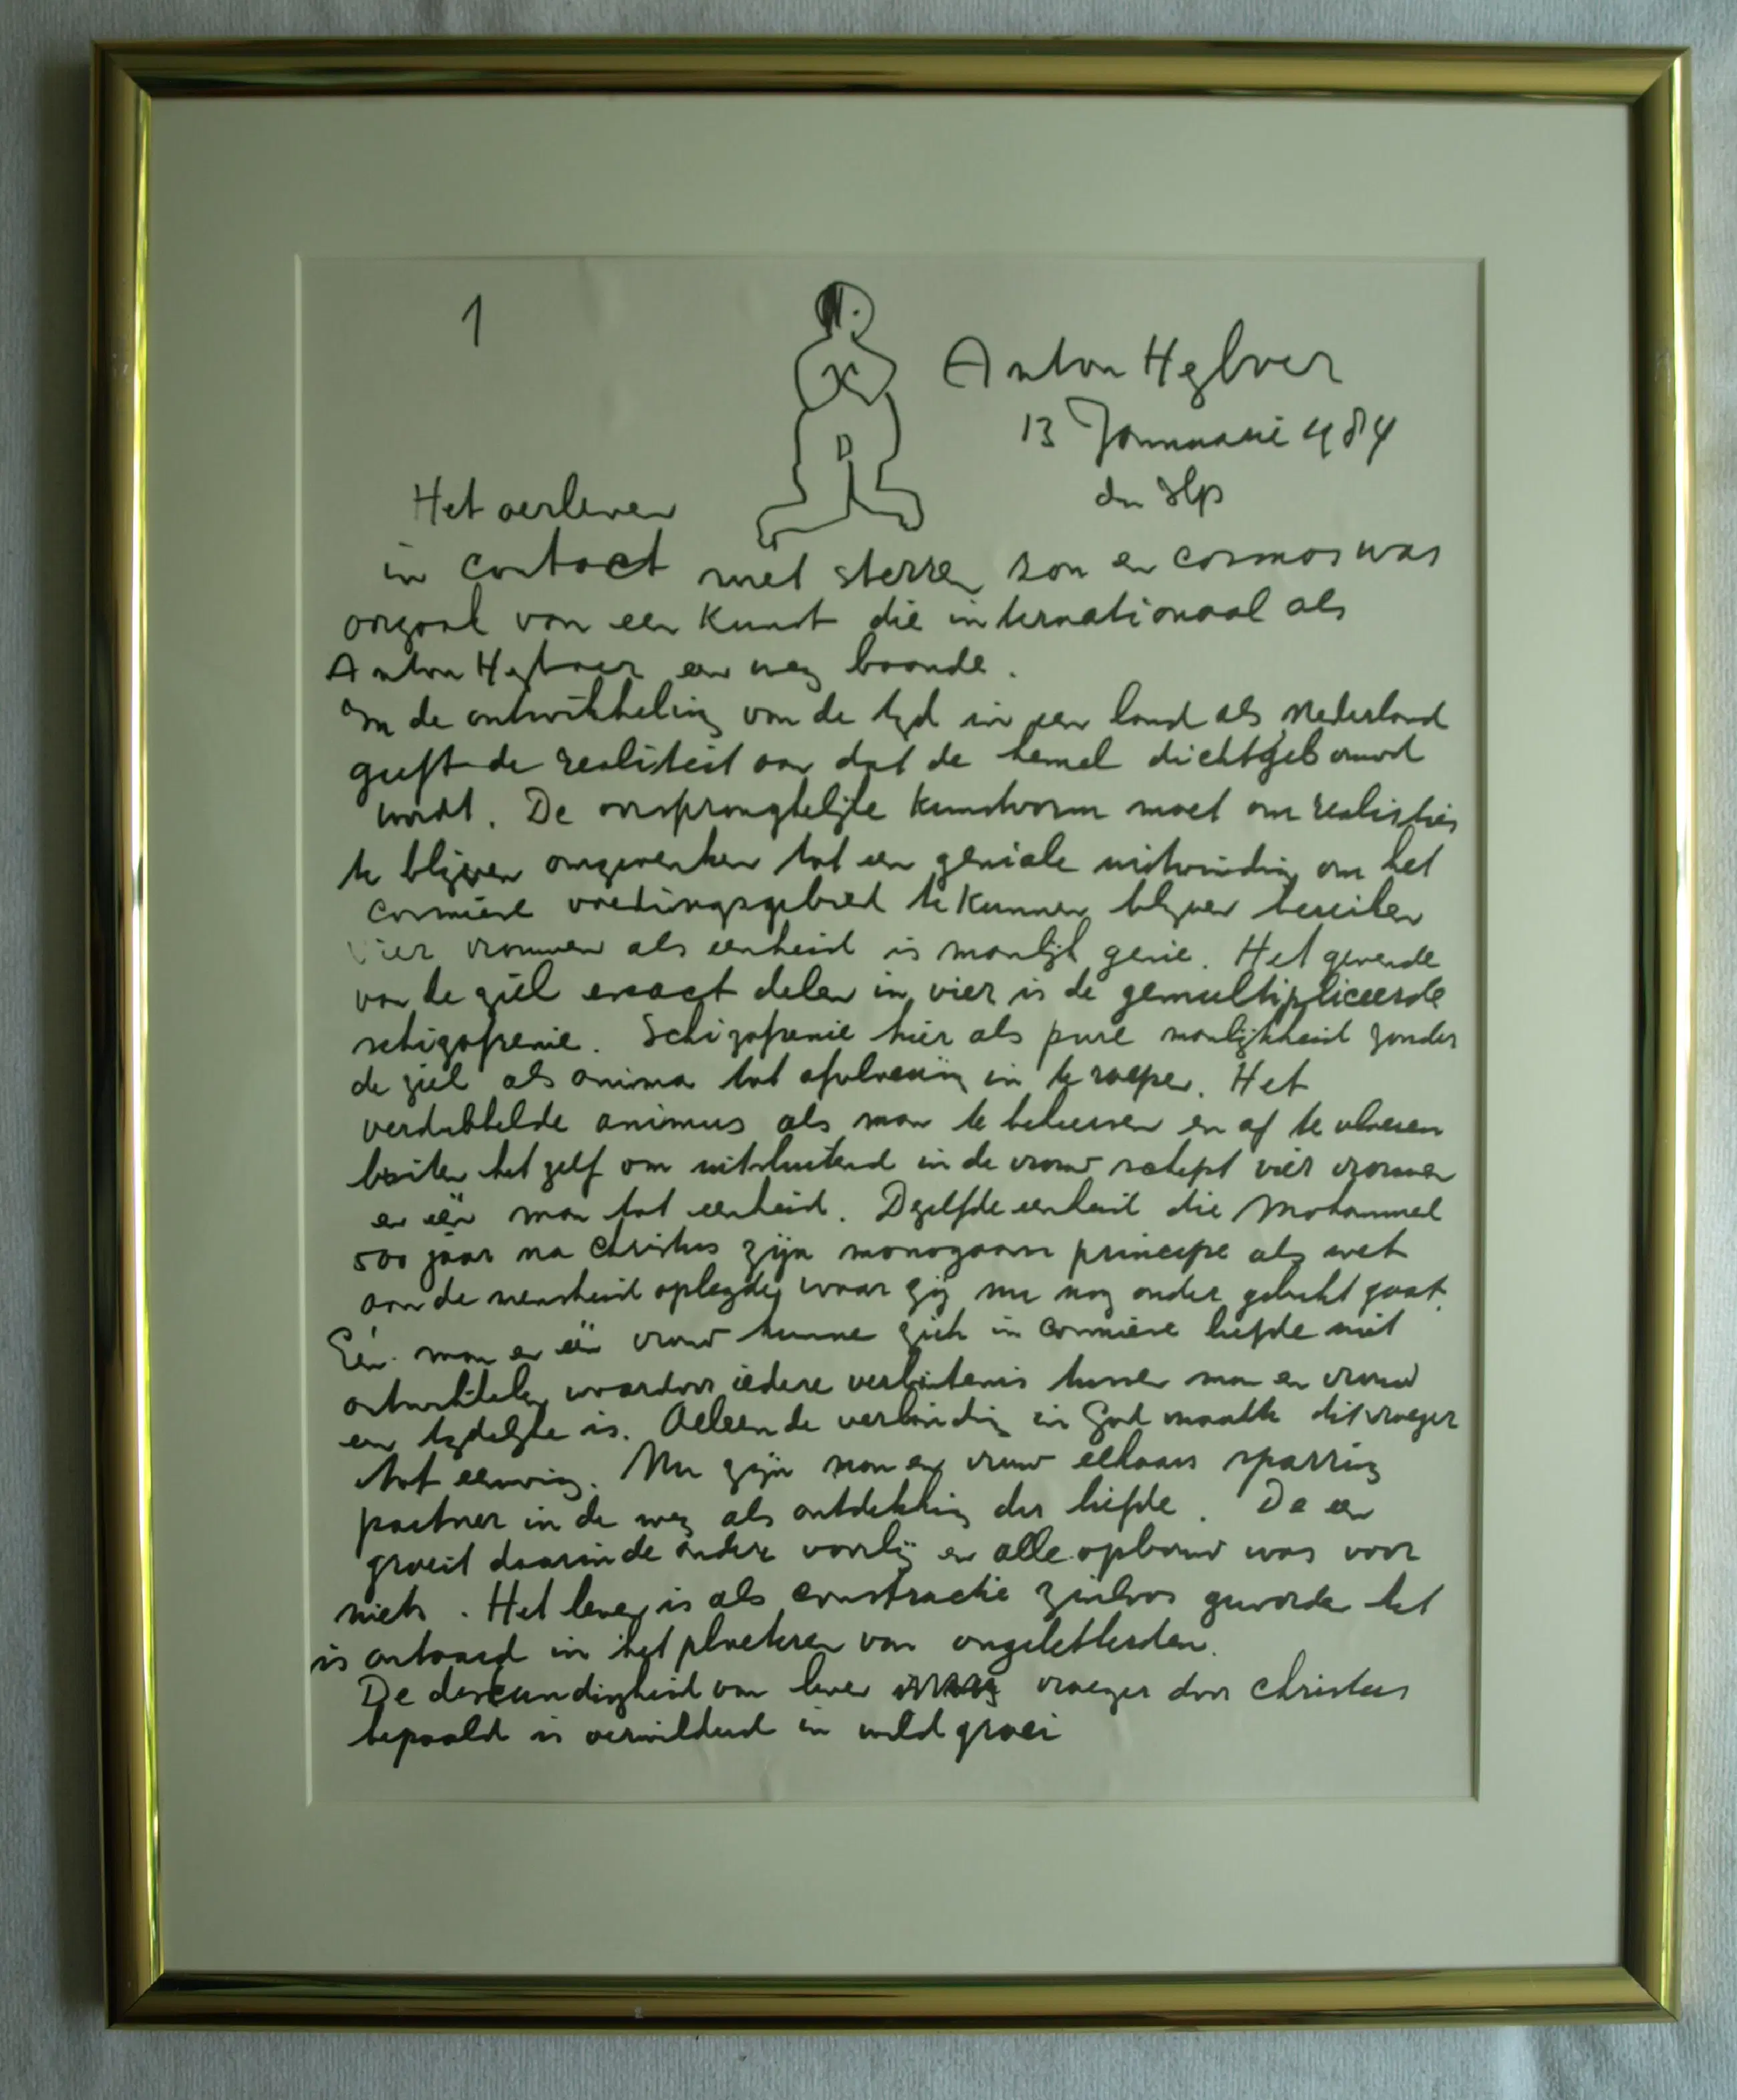 1
Anton Heyboer
13 Januarie 1984
den Ilp
Het oerleven
in contact met sterren zon en cosmos was
orgaal van een Kunst die internationaal als
Anton Heyboer een weg baande.
In de ontwikkeling van de tijd in een land als Nederland
geeft de realiteit aan dat de hemel dichtgebouwd
wordt. De oorspronghelijke Kunstvorm moet om realisties
te blijven omgewerken tot een geniale uitvinding om het
cosmiese voedingsgebied te Kunnen blijven bereiken
vier vrouwen als eenheid is manlijk genie. Het gevende
van de ziel exact delen in vier is de gemultipliceerde
schizofrenie. Schizofrenie hier als pure manlijkheid zonder
de ziel als anima tot afvloeiing in te roepen. Het
verdubbelde animus als man te beheersen en af te vloeien
buiten het zelf om uitsluitend in de vrouw schept vier vrouwen
en één man tot eenheid. Dezelfde eenheid die Mohammed
500 jaar na Christus zijn monogaam principe als wet
aan de mensheid oplegde, waar zij nu nog onder gebukt gaat.
Eén man en één vrouw kunne zich in cosmiese liefde niet
ontwikkelen waardoor iedere verbintenis tussen man en vrouw
een tijdelijke is. Alleen de verbinding in God maakte dit vroeger
tot eeuwig. Nu zijn man en vrouw elkaars sparring
partner in de weg als ontdekking der liefde. De een
groeit daarin de andere voorbij en alle opbouw was voor
niets. Het leven is als constructie zinloos geworden het
is ontaard in het ploeteren van ongeletterden.
De deskundigheid van leven vroeger door Christus
bepaald is verwilderd in wildgroei